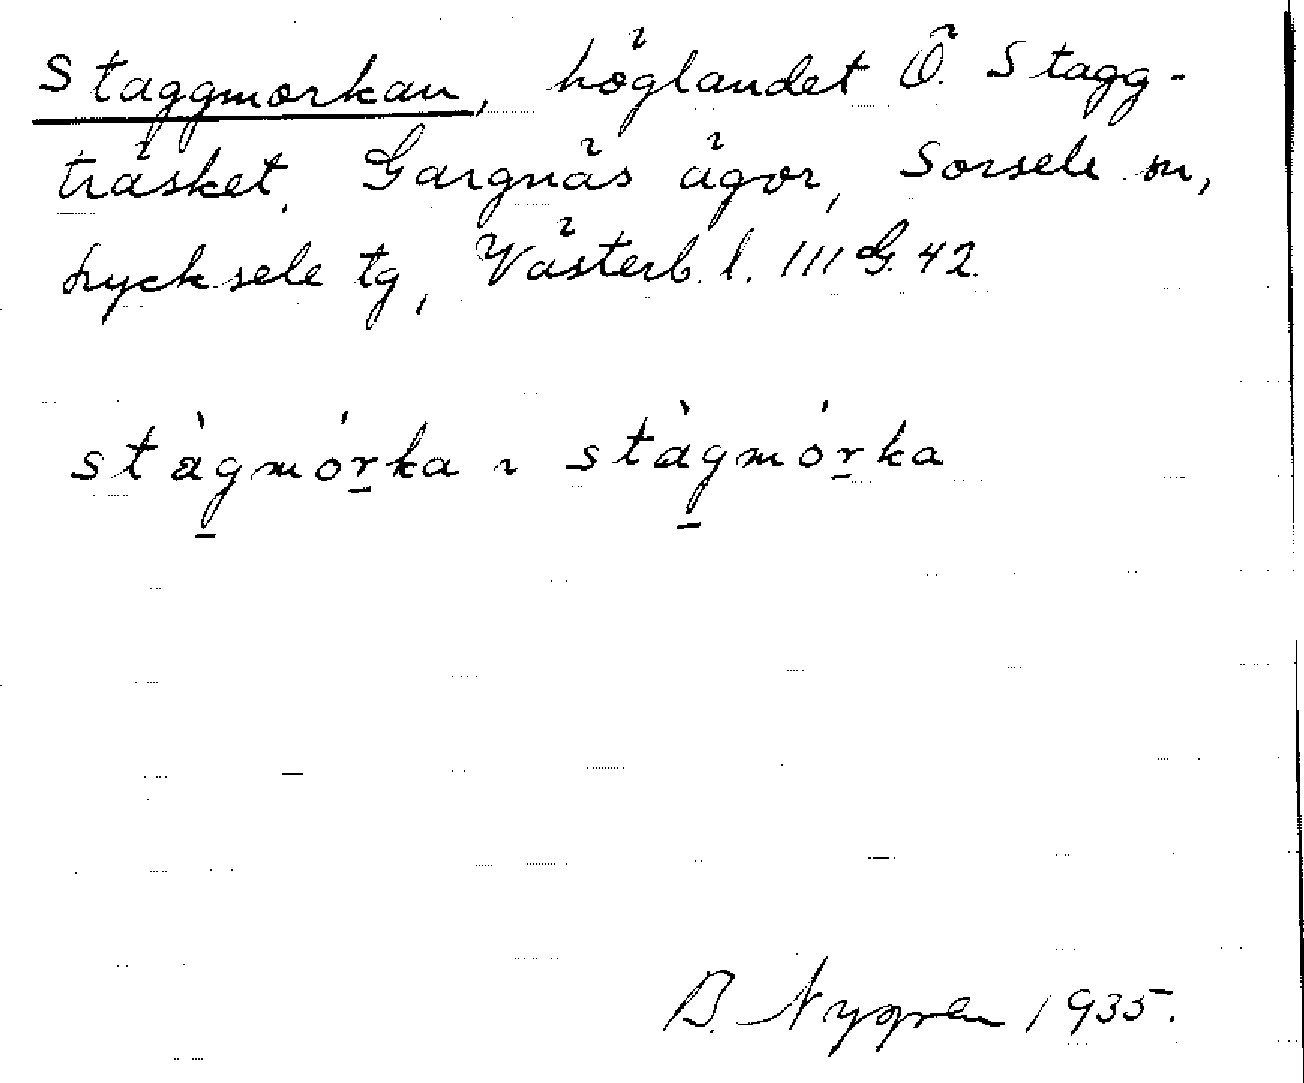 Staggmorkan, höglandet Ö. Stagg-
träsket, Gargnäs ägor, Sorsele sn,
Lycksele tg, Västerb. l. III G. 42.
stàgmórka ı stàgmórka
B. Nygren 1935.